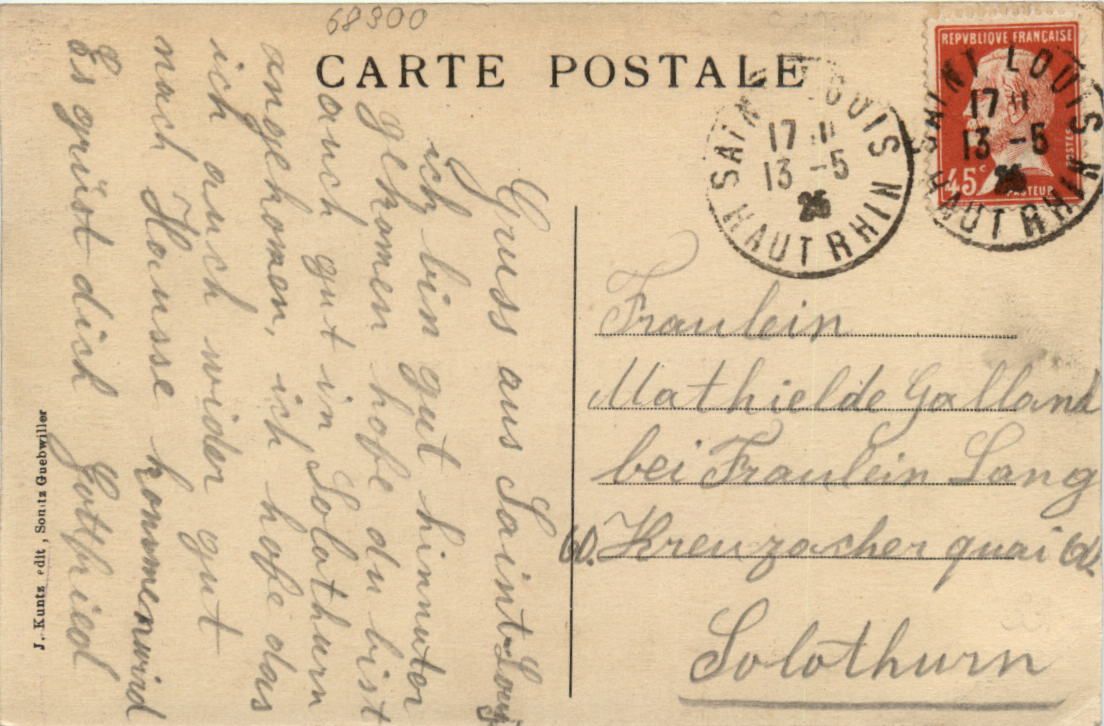 68300
CARTE POSTALE
REPVBLIQUE FRANÇAISE
45 c
POSTES
PASTEUR
SAINT LOUIS
17 11
13 -5
26
HAUT RHIN
SAINT LOUIS
17 11
13 -5
26
HAUT RHIN
Gruss aus Saint-Louis
ich bin gut hinnuter
gekomen hofe du bist
auch gut in Solothurn
angekomen, ich hofe das
ich auch wider gut
nach Hausse kommen wird
Es grüst dich Gottfried
Fraulein
Mathielde Galland
bei Fraulein Lang
60. Kreuzacher quai 60.
Solothurn
J. Kuntz edit, Soultz Guebwiller